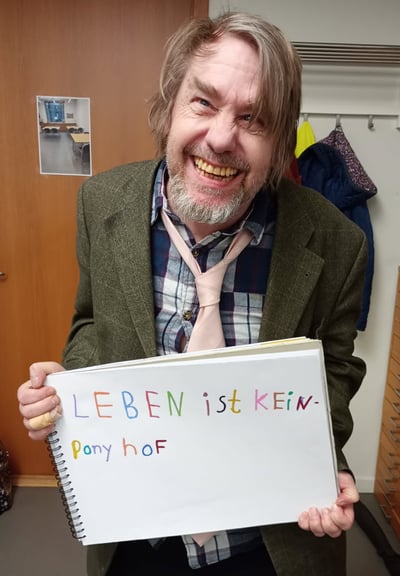 LEBEN ist KEiN-
Pony hoF